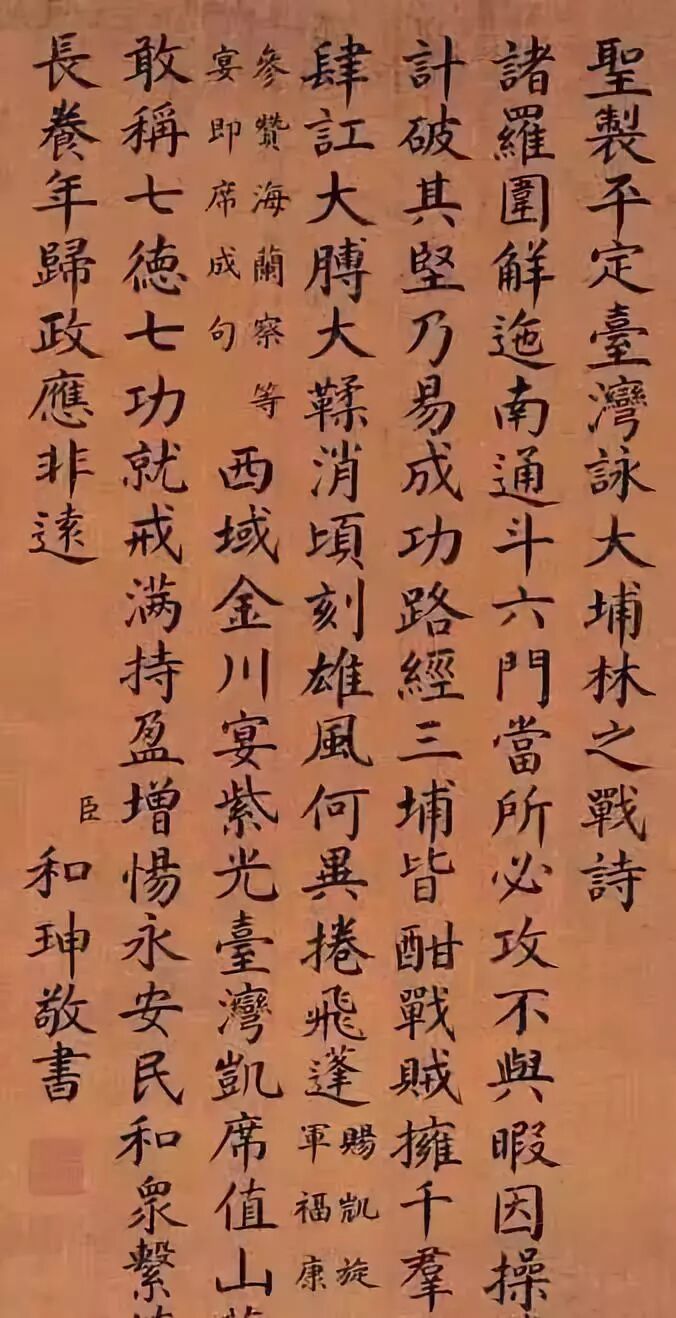 聖製平定臺灣詠大埔林之戰詩
諸羅圍解迤南通斗六門當所必攻不與暇因操
計破其堅乃易成功路經三埔皆酣戰賊擁千羣
肆訌大膊大鞣消頃刻雄風何異捲飛蓬
賜凱旋
軍福康
參贊海蘭察等
宴即席成句
西域金川宴紫光臺灣凱席值山
敢稱七徳七功就戒满持盈增惕永安民和衆繫
長養年歸政應非逺
臣和珅敬書